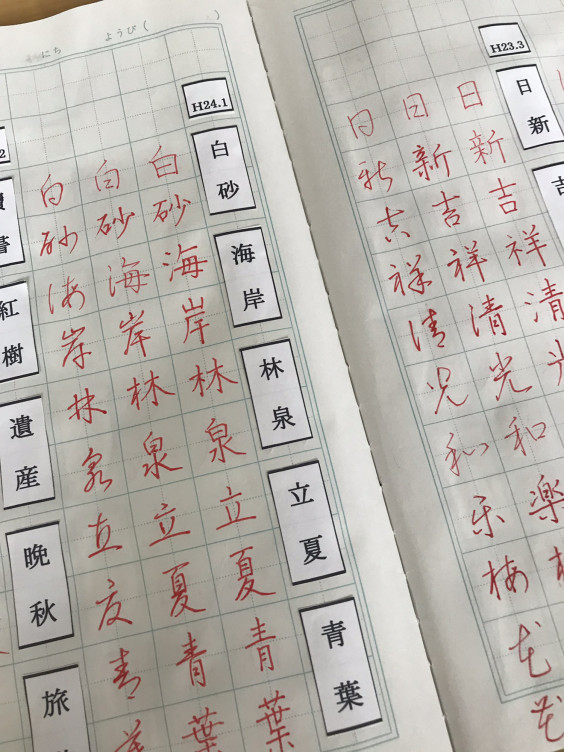 H23.3
日新
吉
日新吉祥清
日新吉祥清光和楽
日新吉祥清光和楽梅花
にち ようび ( )
H24.1
白砂
海岸
林泉
立夏
青葉
白砂海岸林泉立夏青葉
白砂海岸林泉立夏青葉
白砂海岸林泉立夏青
書
紅樹
遺産
晩秋
旅